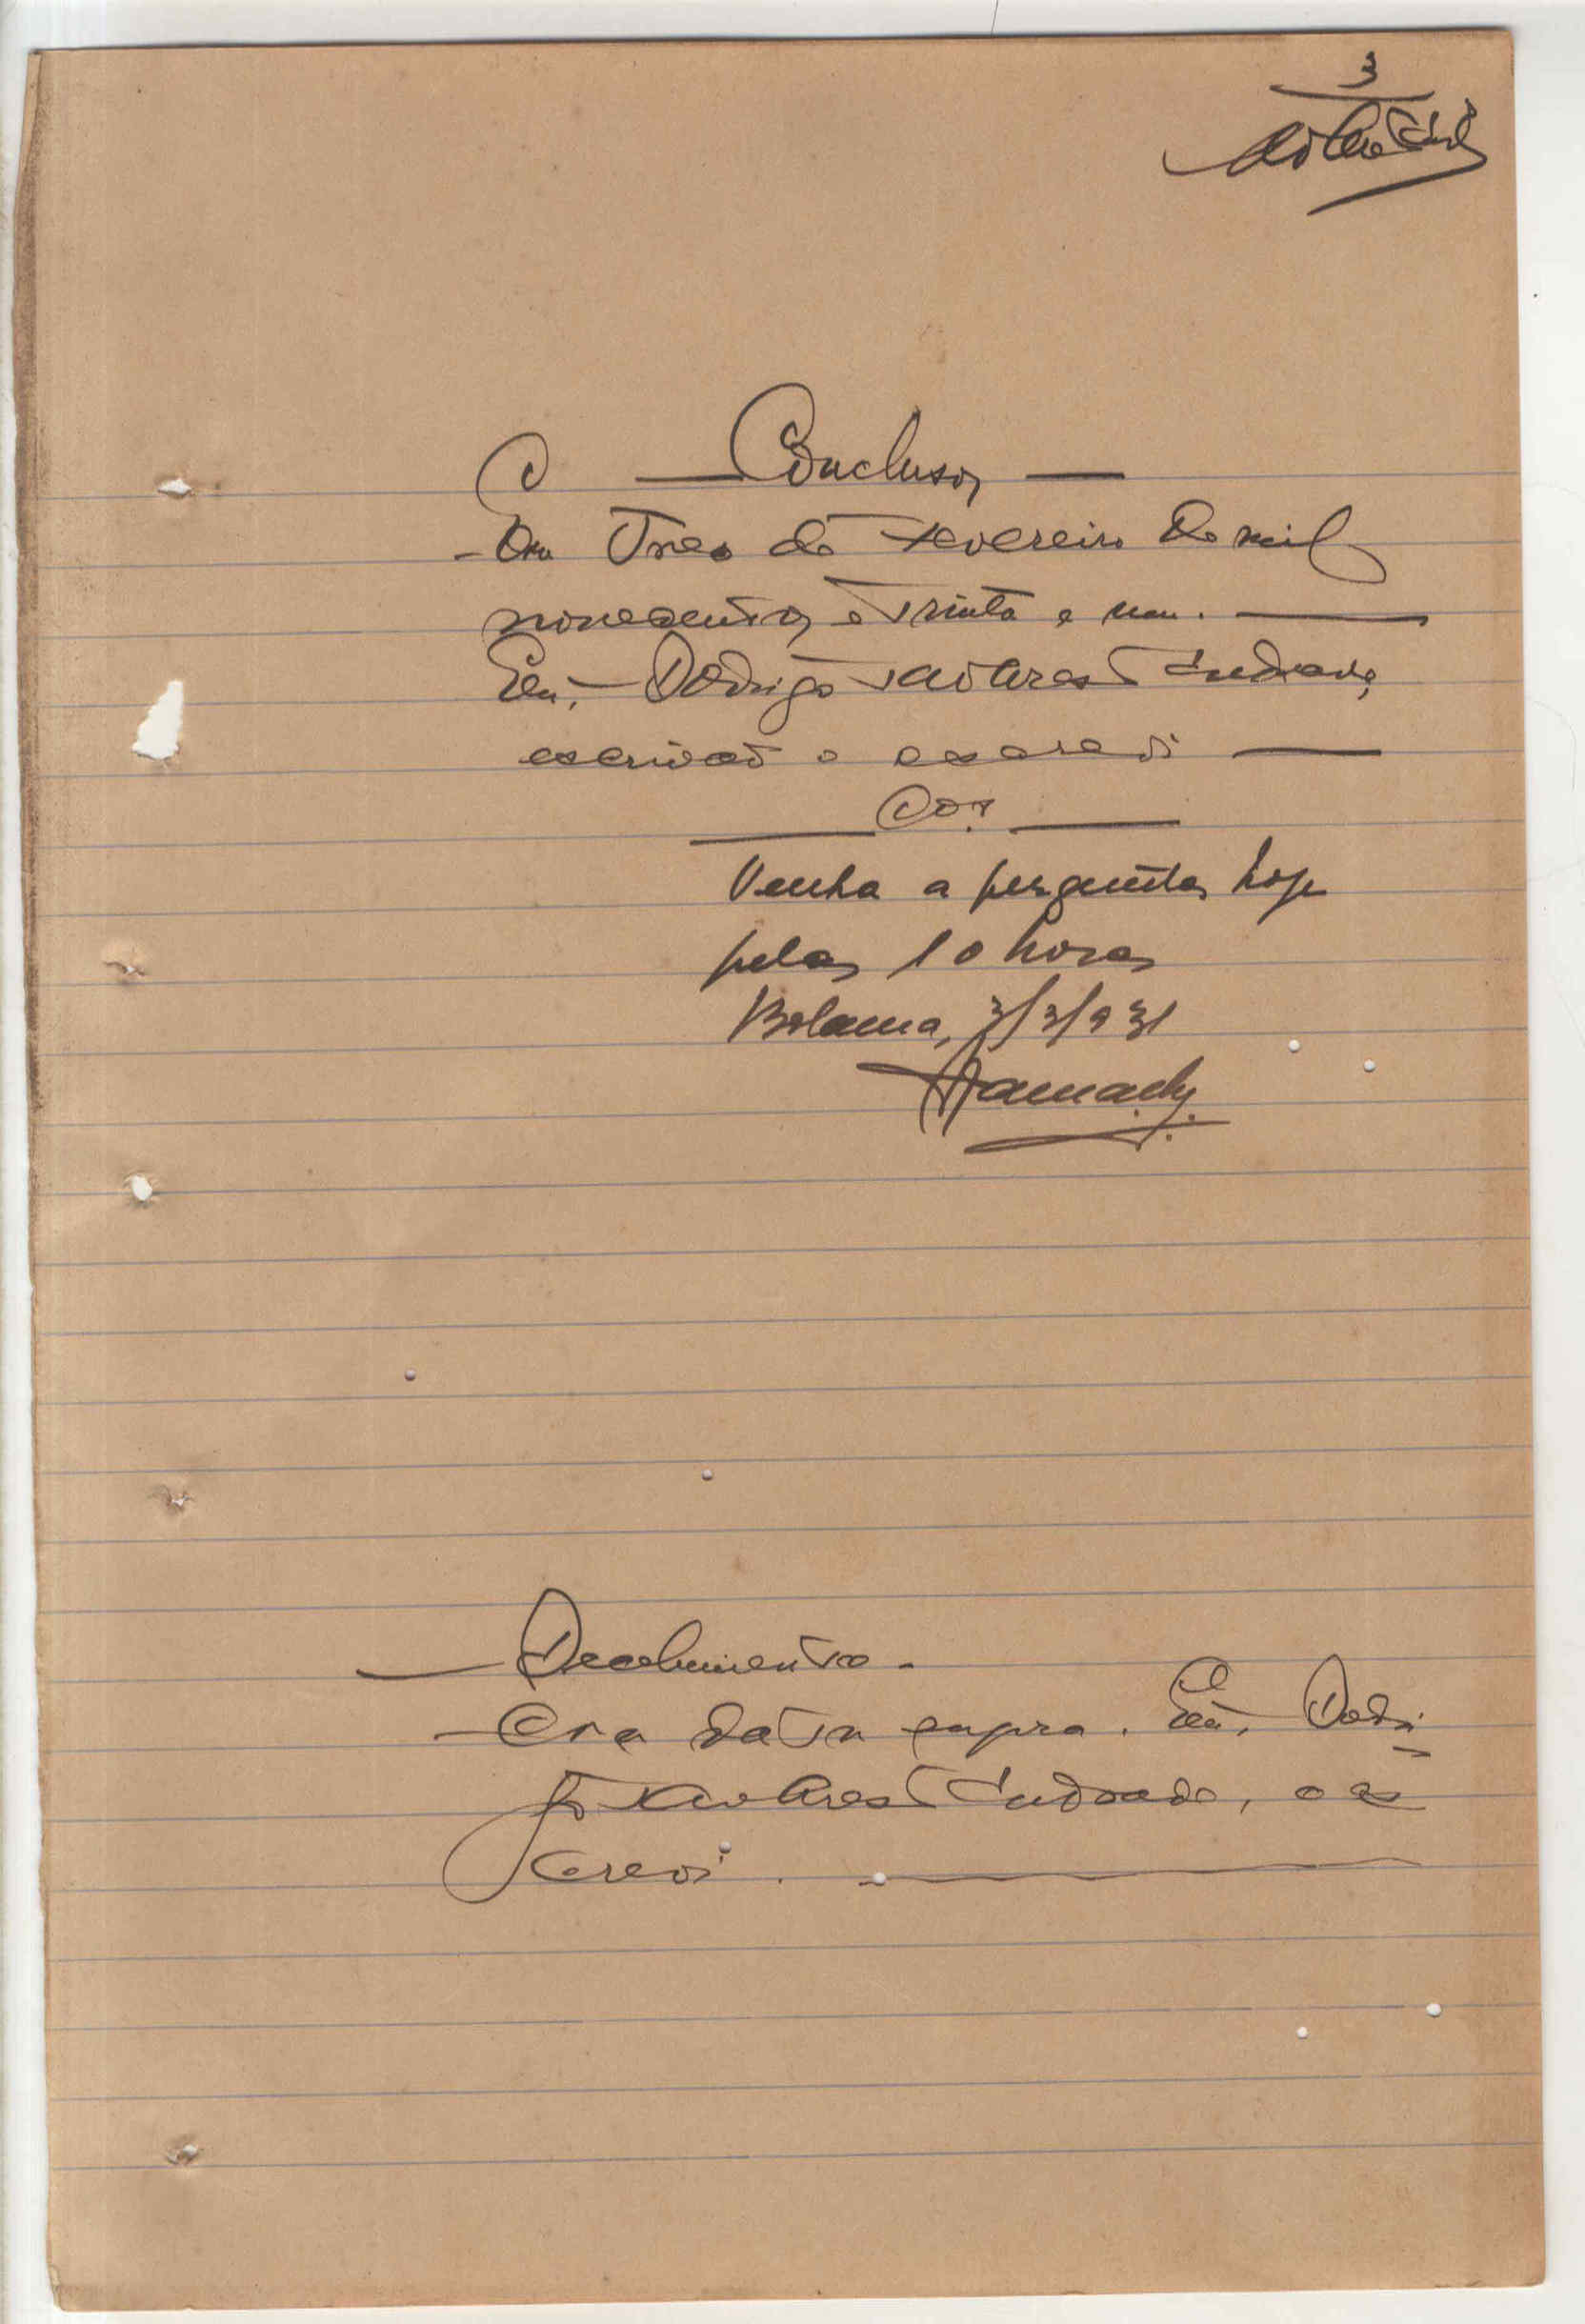 3
Conclusos
Em Tres de Fevereiro de mil
novecentos e trinta e um.
Eu, Rodrigo Tavares Andrade,
escrivão o escrevi
Cos
Venha a perguntas hoje
pelas 10 horas
Bolama, 3/2/931
Recebimento.
Era data supra. Eu, Rodri-
go Tavares Andrade, o es
crevi.